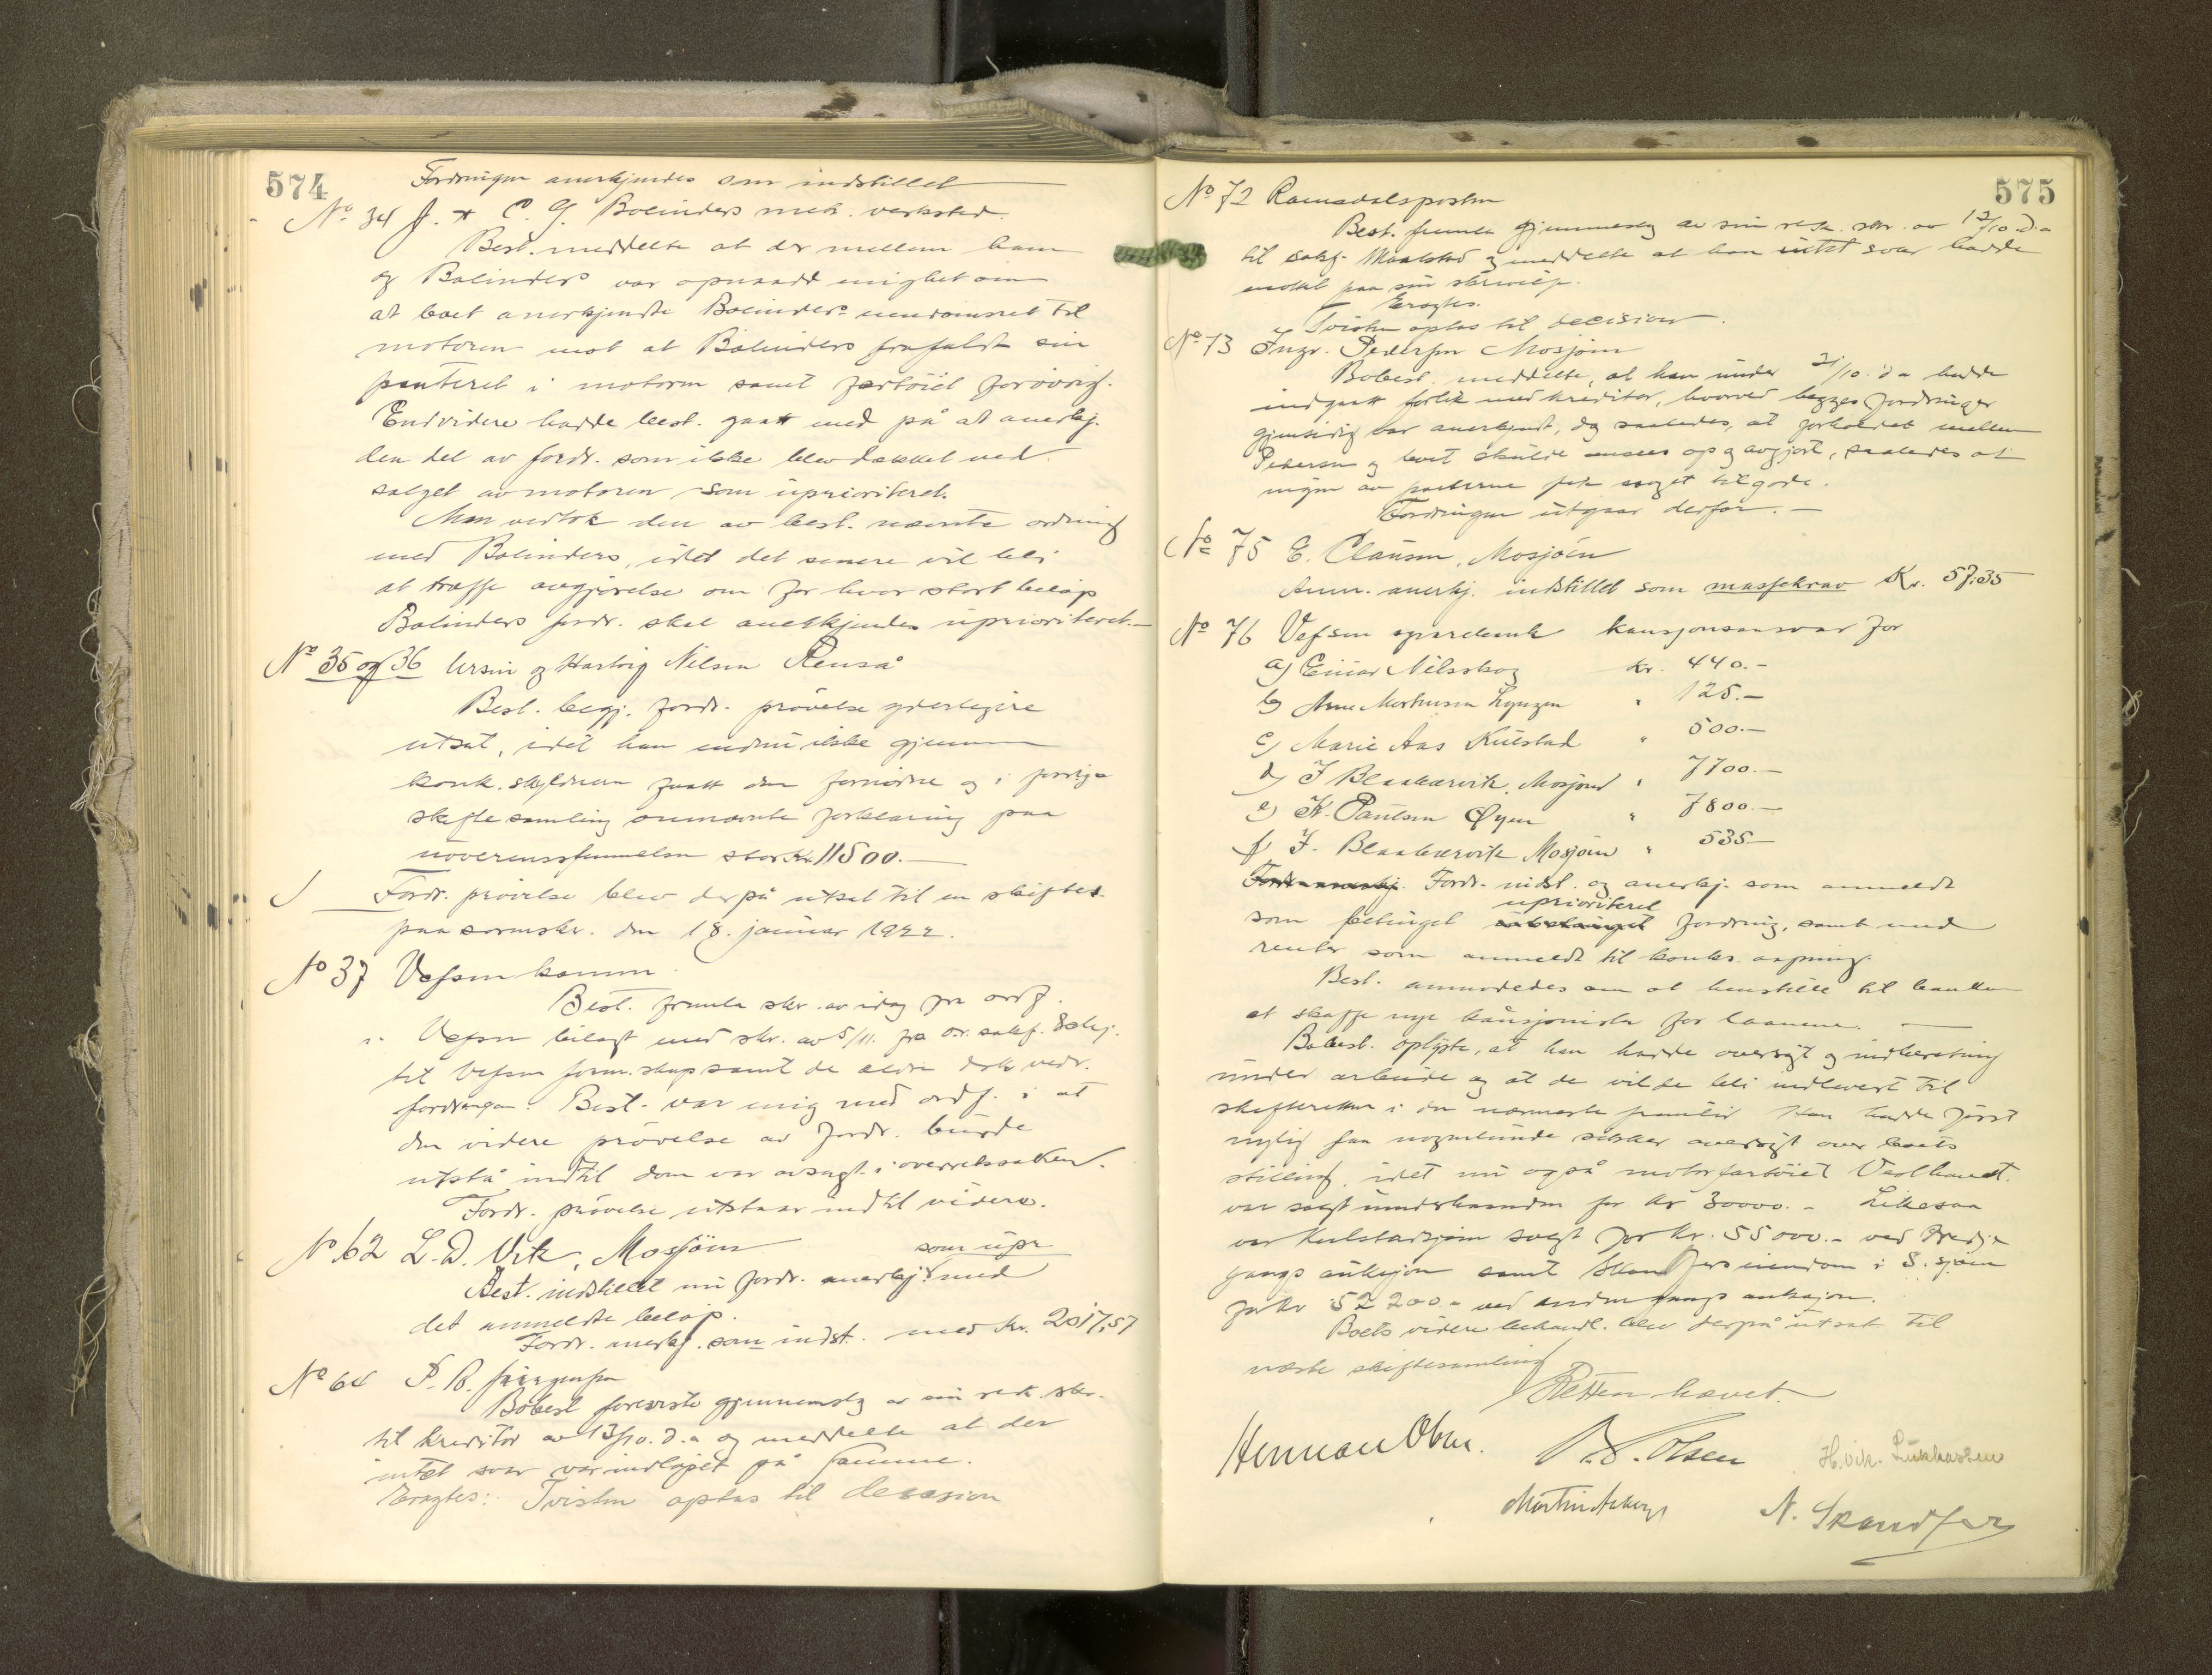 574
Fordringen anerkjendes som indstillet
No 34 J. & C. G. Bolinders mek. verksted.
Best. meddelte at der mellem ham
og Bolinders var opnaadd enighet om
at boet anerkjendte Bolinders eiendomsret til
motoren mot at Bolinders frafaldt sin
panteret i motoren samt fartöiet forövrig.
Endvidere hadde best. gaatt med på at anerkj.
den del av fordr. som ikke blev dækket ved
salget av motoren som uprioriteret.
Man vedtok den av best. nævnte ordning
med Bolinders, idet det senere vil bli
at træffe avgjörelse om for hvor stort belöp
Bolinders fordr. skal anerkjendes uprioriteret.—
No 35 og 36 Ursin og Hartvig Nilsen Renså
Best. begj. fordr. prövelse yderligere
utsat, idet han endnu ikke gjennem
konk. skyldneren faatt den fornödne og i forrige
skiftesamling omnævnte forklaring paa
uoverensstemmelsen stor Kr. 11500.—
Fordr. prövelse blev derpå utsat til en skiftes.
paa sorenskr. den 18. januar 1922.
No 37 Vefsen komm.
Best. fremla skr. av idag fra ordf.
i Vefsn bilagt med skr. av 5/11. fra o.r. sakf.
til Vefsn form.skap samt de ældre dok. vedr.
fordringen. Best. var enig med ordf. i at
den videre prövelse av fordr. burde
utstå indtil dom var avsagt i overretssaken.
Fordr. prövelse utstaar indtil videre.
No 62 L. D. Vik, Mosjöen
som upr.
Best. indstillet nu fordr. anerkj. med
det anmeldte belöp.
Fordr. anerkj. som indst. med Kr. 2017,57
No 64 P. B. Jörgensen
Bobest. foreviste gjennemslag av sin rek. skr.
til kreditor av 13/10. d.a og meddelte at der
intet svar var indlöpet på samme.
Eragtes: Tvisten optas til decision
575
No 72 Romsdalsposten
Best. fremla gjennemslag av sin rek. skr. av 12/10. d.a
til sakf. Maalstad og meddelte at han intet svar hadde
mottat paa sin skrivelse.
Eragtes.
Tvisten optas til decision.
No 73 Ingv. Pedersen Mosjöen
Bobest. meddelte, at han under 21/10. d a hadde
indgaatt forlik med kreditor, hvorved begges fordringer
gjensidig var anerkjendt, og saaledes, at forholdet mellem
Pedersen og boet skulde ansees op og avgjort, saaledes at
ingen av parterne fik noget tilgode.
Fordringen utgaar derfor.—
No 75 E. Clausen, Mosjöen
Anm. anerkj. indstillet som massekrav Kr. 57,35
No 76 Vefsen sparebank kausjonsansvar for
a) Einar Nilsskog kr. 440.-
b) Arne Mortensen Lyngen " 125.—
c) Marie Aas Kulstad " 500.—
d) I Blaabærvik. Mosjöen " 7700.—
e) K. Paulsen Öyen " 7800.—
f I. Blaabærvik Mosjöen " 535.—
Fordr. anerkj. Fordr. indst. og anerkj. som anmeldt
uprioriteret
som betinget ubetinget fordring, samt med
renter som anmeldt til konkursaapning.
Best. anmodedes om at henstille til banken
at skaffe nye kausjonister for laanene.—
Bobest. oplyste, at han hadde oversigt og indberetning
under arbeide og at de vilde bli indlevert til
skifteretten i den nærmeste fremtid. Han hadde först
nylig faa nogenlunde sikker oversigt over boets
stilling, idet nu også motorfartöiet Vesthavet.
var solgt underhaanden for kr 30000.- Likesaa
var Kulstadsjöen solgt for Kr. 55000.- ved tredje
gangs auksjon samt Skandfers eiendom i S.sjöen
for kr 52200.- ved anden gangs auksjon.
Boets videre behandl. blev derpå utsat til
næste skiftesamling
Retten hævet.
Herman Olsen. P. S. Olsen H. Vik. Lukkassen
Martin Asberg N. Skandfer